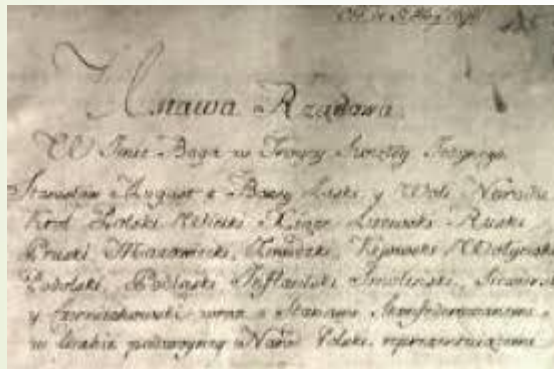 Ustawa Rządowa.
W Imie Boga w Troycy Swiętey Jedynego.
Stanisław August z Bożey Łaski y Woli Narodu
Krol Polski, Wielki Xiąże Litewski, Ruski,
Pruski, Mazowiecki, Zmudzki, Kijowski, Wołyński,
Podolski, Podlaski, Inflantski, Smolenski, Siewierski
y Czerniechowski, wraz z Stanami Skonfederowanemi
w liczbie podwoyney Narod Polski reprezentuiącemi